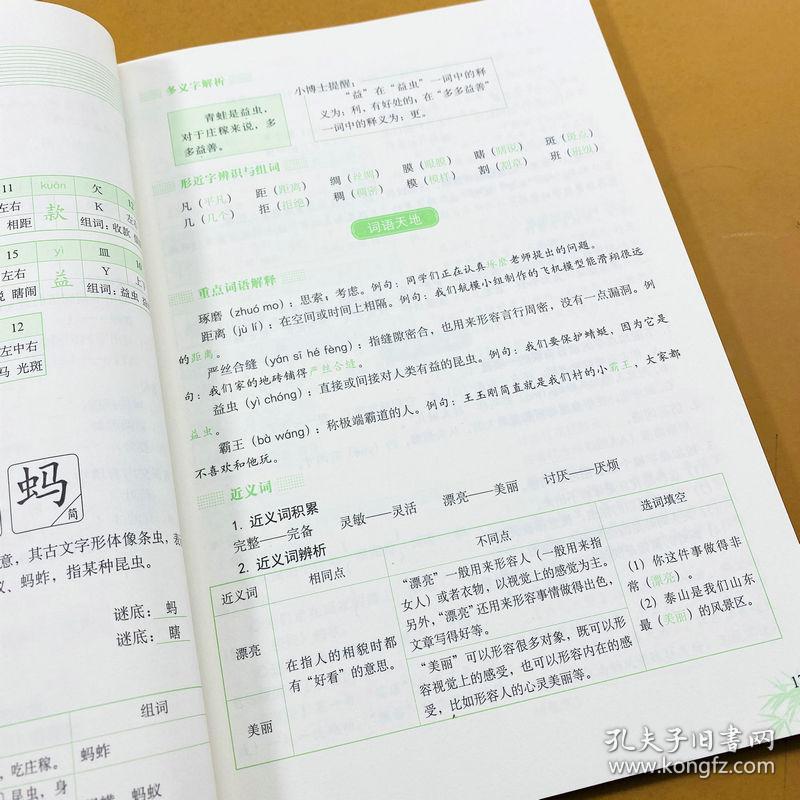 11 kuǎn 欠
左右 款 K
相距 组词：收款
15 yì 皿
左右 益 Y
瞎闹 组词：益虫
12
左中右
马 光斑
蚂
简
意，其古文字形体像条虫，
、蚂蚱，指某种昆虫。
谜底：蚂
谜底：瞎
组词
，吃庄稼。 蚂蚱
昆虫，身
蚂蚁
多义字解析
青蛙是益虫，
对于庄稼来说，多
多益善。
小博士提醒：
“益”在“益虫”一词中的释
义为：利，有好处的；在“多多益善”
一词中的释义为：更。
形近字辨识与组词
凡（平凡） 距（距离） 绸（丝绸） 膜（眼膜） 瞎（瞎说） 斑（斑点）
几（几个） 拒（拒绝） 稠（稠密） 模（模样） 割（割草） 班（班级）
词语天地
重点词语解释
琢磨（zhuó mo）：思索；考虑。例句：同学们正在认真琢磨老师提出的问题。
距离（jù lí）：在空间或时间上相隔。例句：我们航模小组制作的飞机模型能滑翔很远
的距离。
严丝合缝（yán sī hé fèng）：指缝隙密合，也用来形容言行周密，没有一点漏洞。例
句：我们家的地砖铺得严丝合缝。
益虫（yì chóng）：直接或间接对人类有益的昆虫。例句：我们要保护蜻蜓，因为它是
益虫。
霸王（bà wáng）：称极端霸道的人。例句：王玉刚简直就是我们村的小霸王，大家都
不喜欢和他玩。
近义词
1. 近义词积累
完整——完备 灵敏——灵活 漂亮——美丽 讨厌——厌烦
2. 近义词辨析
近义词 相同点 不同点 选词填空
漂亮
美丽
在指人的相貌时都
有“好看”的意思。
“漂亮”一般用来形容人（一般用来指
女人）或者衣物，以视觉上的感觉为主。
另外，“漂亮”还用来形容事情做得出色，
文章写得好等。
“美丽”可以形容很多对象，既可以形
容视觉上的感受，也可以形容内在的感
受，比如形容人的心灵美丽等。
（1）你这件事做得非
常（漂亮）。
（2）泰山是我们山东
最（美丽）的风景区。
孔夫子旧书网
www.kongfz.com